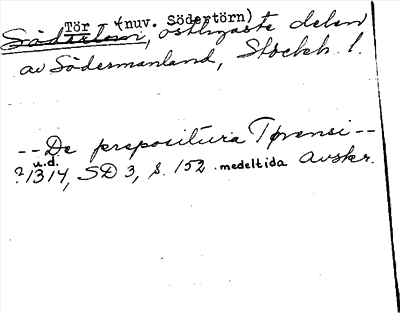 Tör - (nuv. Södertörn)
Södertörn, östligaste delen
av Södermanland, Stockh. l.
--De prepositura Tørensi--
u.d.
?1314, SD 3, s. 152 medeltida avskr.